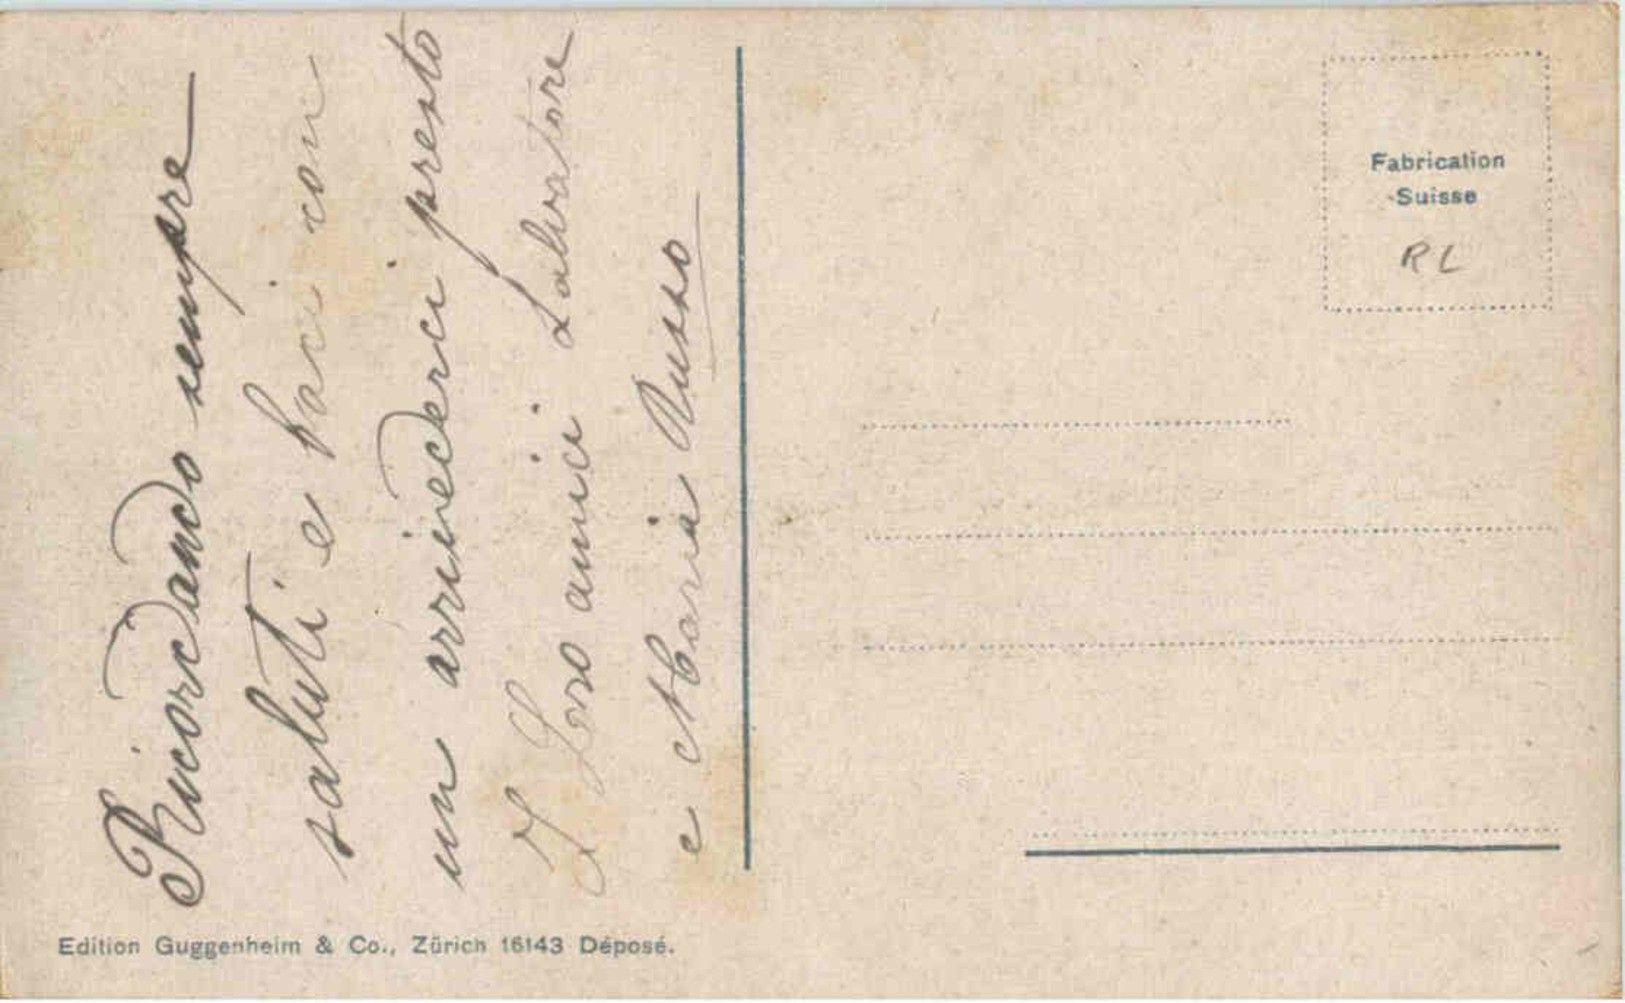 Ricordando sempre
saluti e baci con
un arrivederci presto
I Loro amici Salvatore
e Maria Russo
Edition Guggenheim & Co., Zürich 16143 Déposé.
Fabrication
Suisse
RL